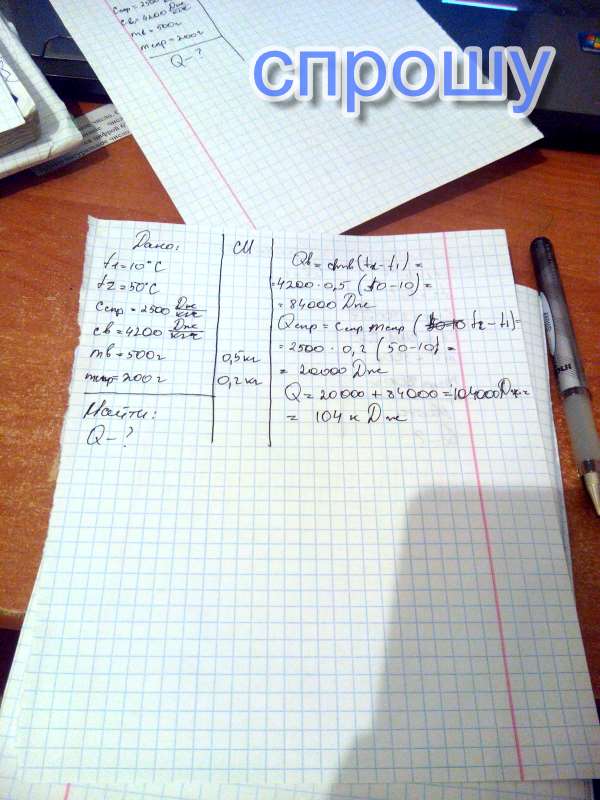 Cспр=2500 Дж
cв=4200 Дж/кг°С
mв=500г
mспр=200г
Q-?
спрошу
Дано:
t1=10°C
t2=50°C
Cспр=2500 Дж/кг°С
cв=4200 Дж/кг°С
mв=500г
mспр=200г
Найти:
Q-?
СИ
0,5кг
0,2кг
Qв=cвmв(t2-t1)=
=4200·0,5(50-10)=
=84000 Дж
Qспр=Cспр mспр(t2-t1)=
=2500·0,2(50-10)=
=20000 Дж
Q=20000+84000=104000Дж=
=104кДж